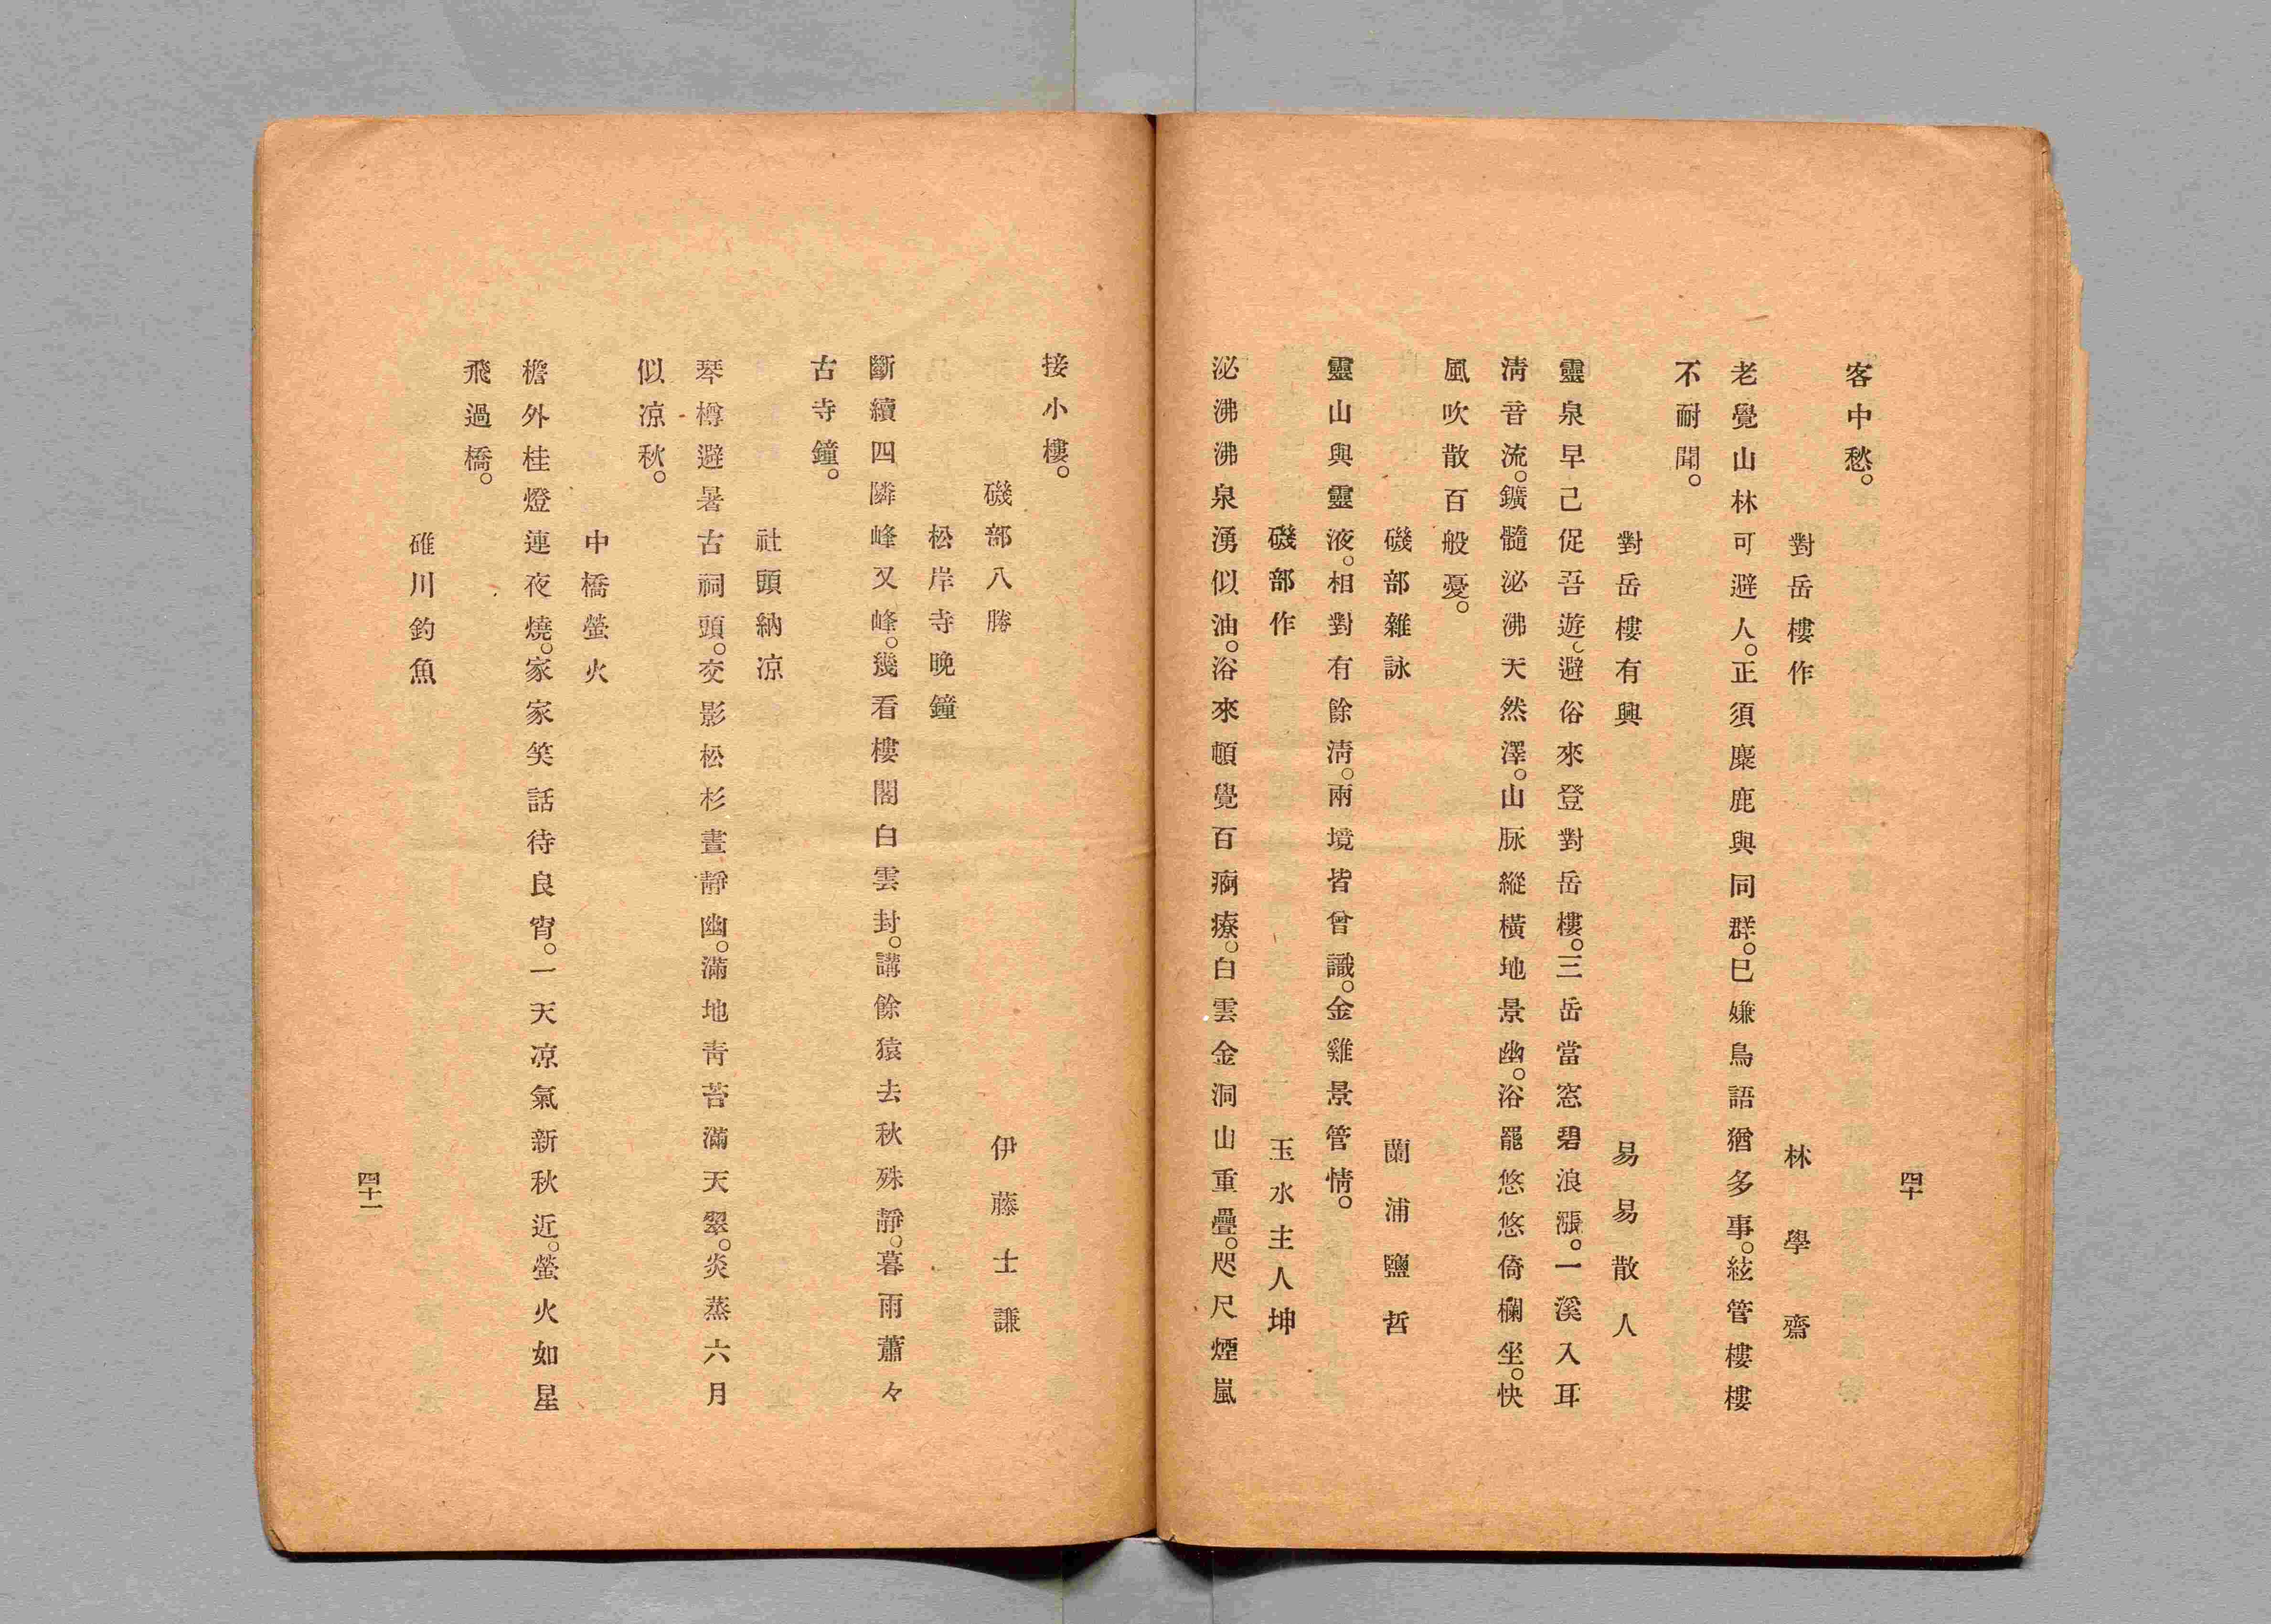 四十
客中愁。
對岳樓作 林學齋
老覺山林可避人。正須麋鹿與同群。巳嫌鳥語猶多事。絃管樓樓
不耐聞。
對岳樓有興 易易散人
靈泉早己促吾遊。避俗來登對岳樓。三岳當窓碧浪漲。一溪入耳
淸音流。鑛髓泌沸天然澤。山脉縱橫地景幽。浴罷悠悠倚欄坐。快
風吹散百般憂。
磯部雜詠 蘭浦鹽哲
靈山與靈液。相對有餘淸。兩境皆曾識。金雞景管情。
磯部作 玉水主人坤
泌沸沸泉湧似油。浴來頓覺百痾療。白雲金洞山重疊。咫尺煙嵐
接小樓。
磯部八勝 伊藤士謙
松岸寺晚鐘
斷續四隣峰又峰。幾看樓閣白雲封。講餘猿去秋殊靜。暮雨蕭々
古寺鐘。
社頭納凉
琴樽避暑古祠頭。交影松杉晝靜幽。滿地靑苔滿天翠。炎蒸六月
似凉秋。
中橋螢火
檐外桂燈連夜燒。家家笑話待良宵。一天凉氣新秋近。螢火如星
飛過橋。
碓川釣魚
四十一